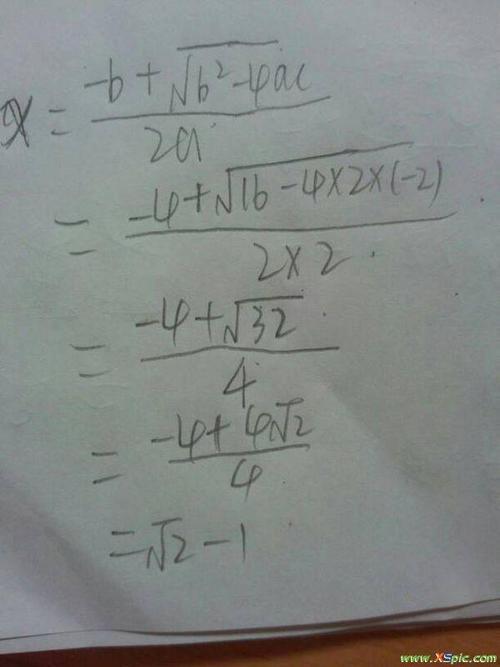 x = (-b + √(b² - 4ac)) / 2a
= (-4 + √(16 - 4×2×(-2))) / 2×2
= (-4 + √32) / 4
= (-4 + 4√2) / 4
= √2 - 1
www.XSpic.com